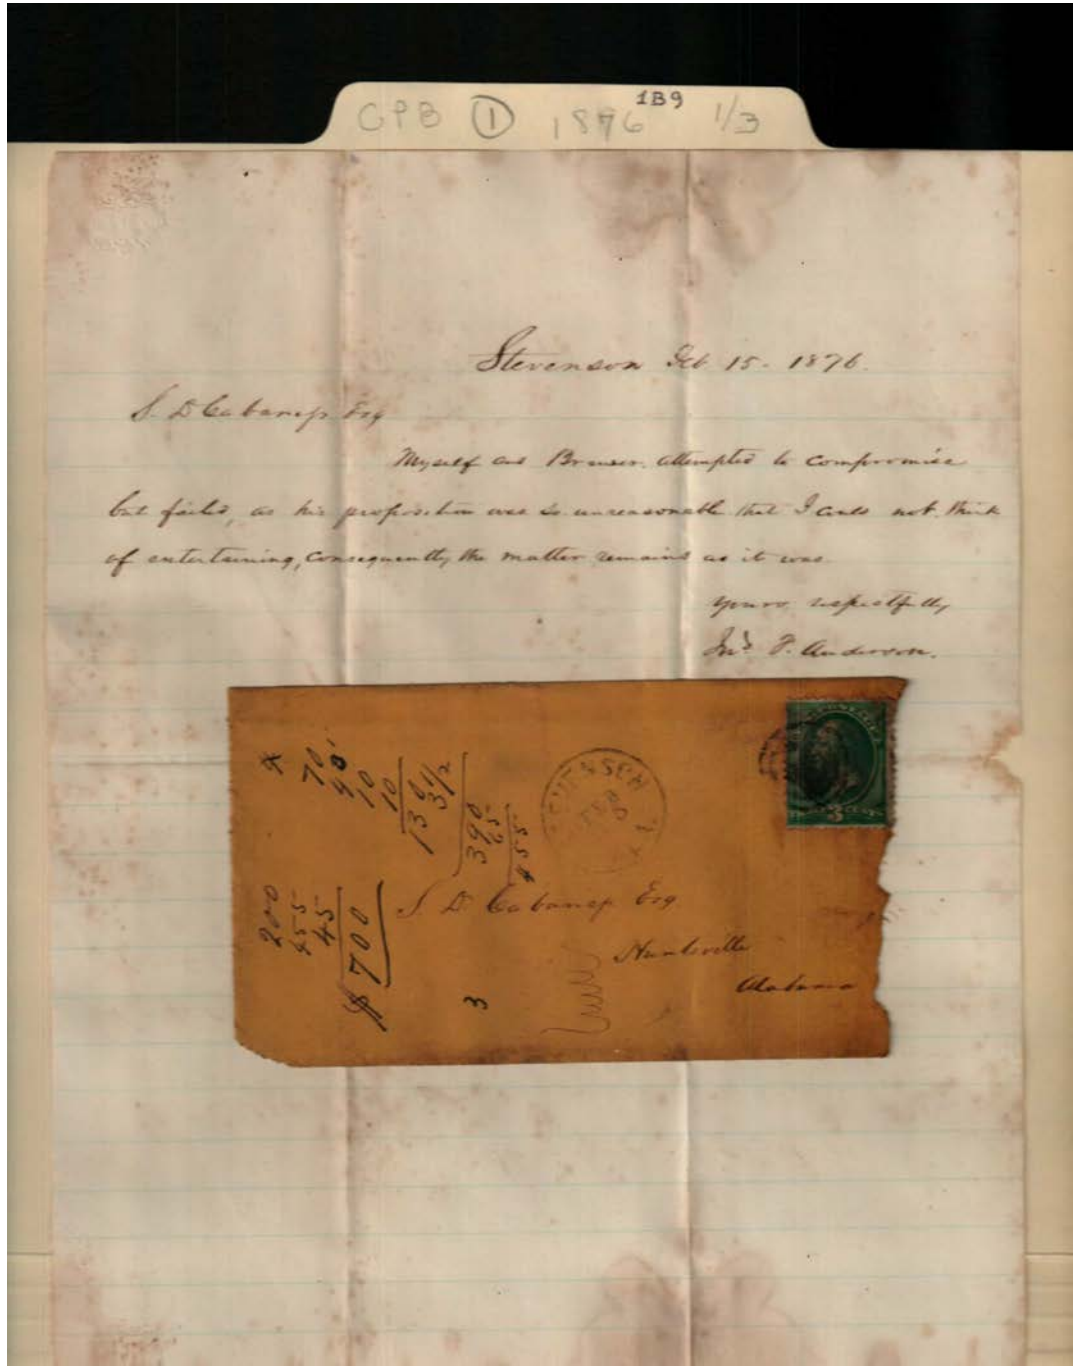 CPB 1 1876 1B9 1/3
Stevenson Feb 15. 1876.
S. D. Cabaness Esq
Myself and Brewer attempted to compromise
but failed, as his proposition was so unreasonable that I could not think
of entertaining, consequently the matter remains as it was
yours respectfully
Jno F. Anderson.
70
90
10
10
130
3 1/2
390
65
455
200
455
45
$700
3
S. D. Cabaness Esq
Huntsville
Alabama